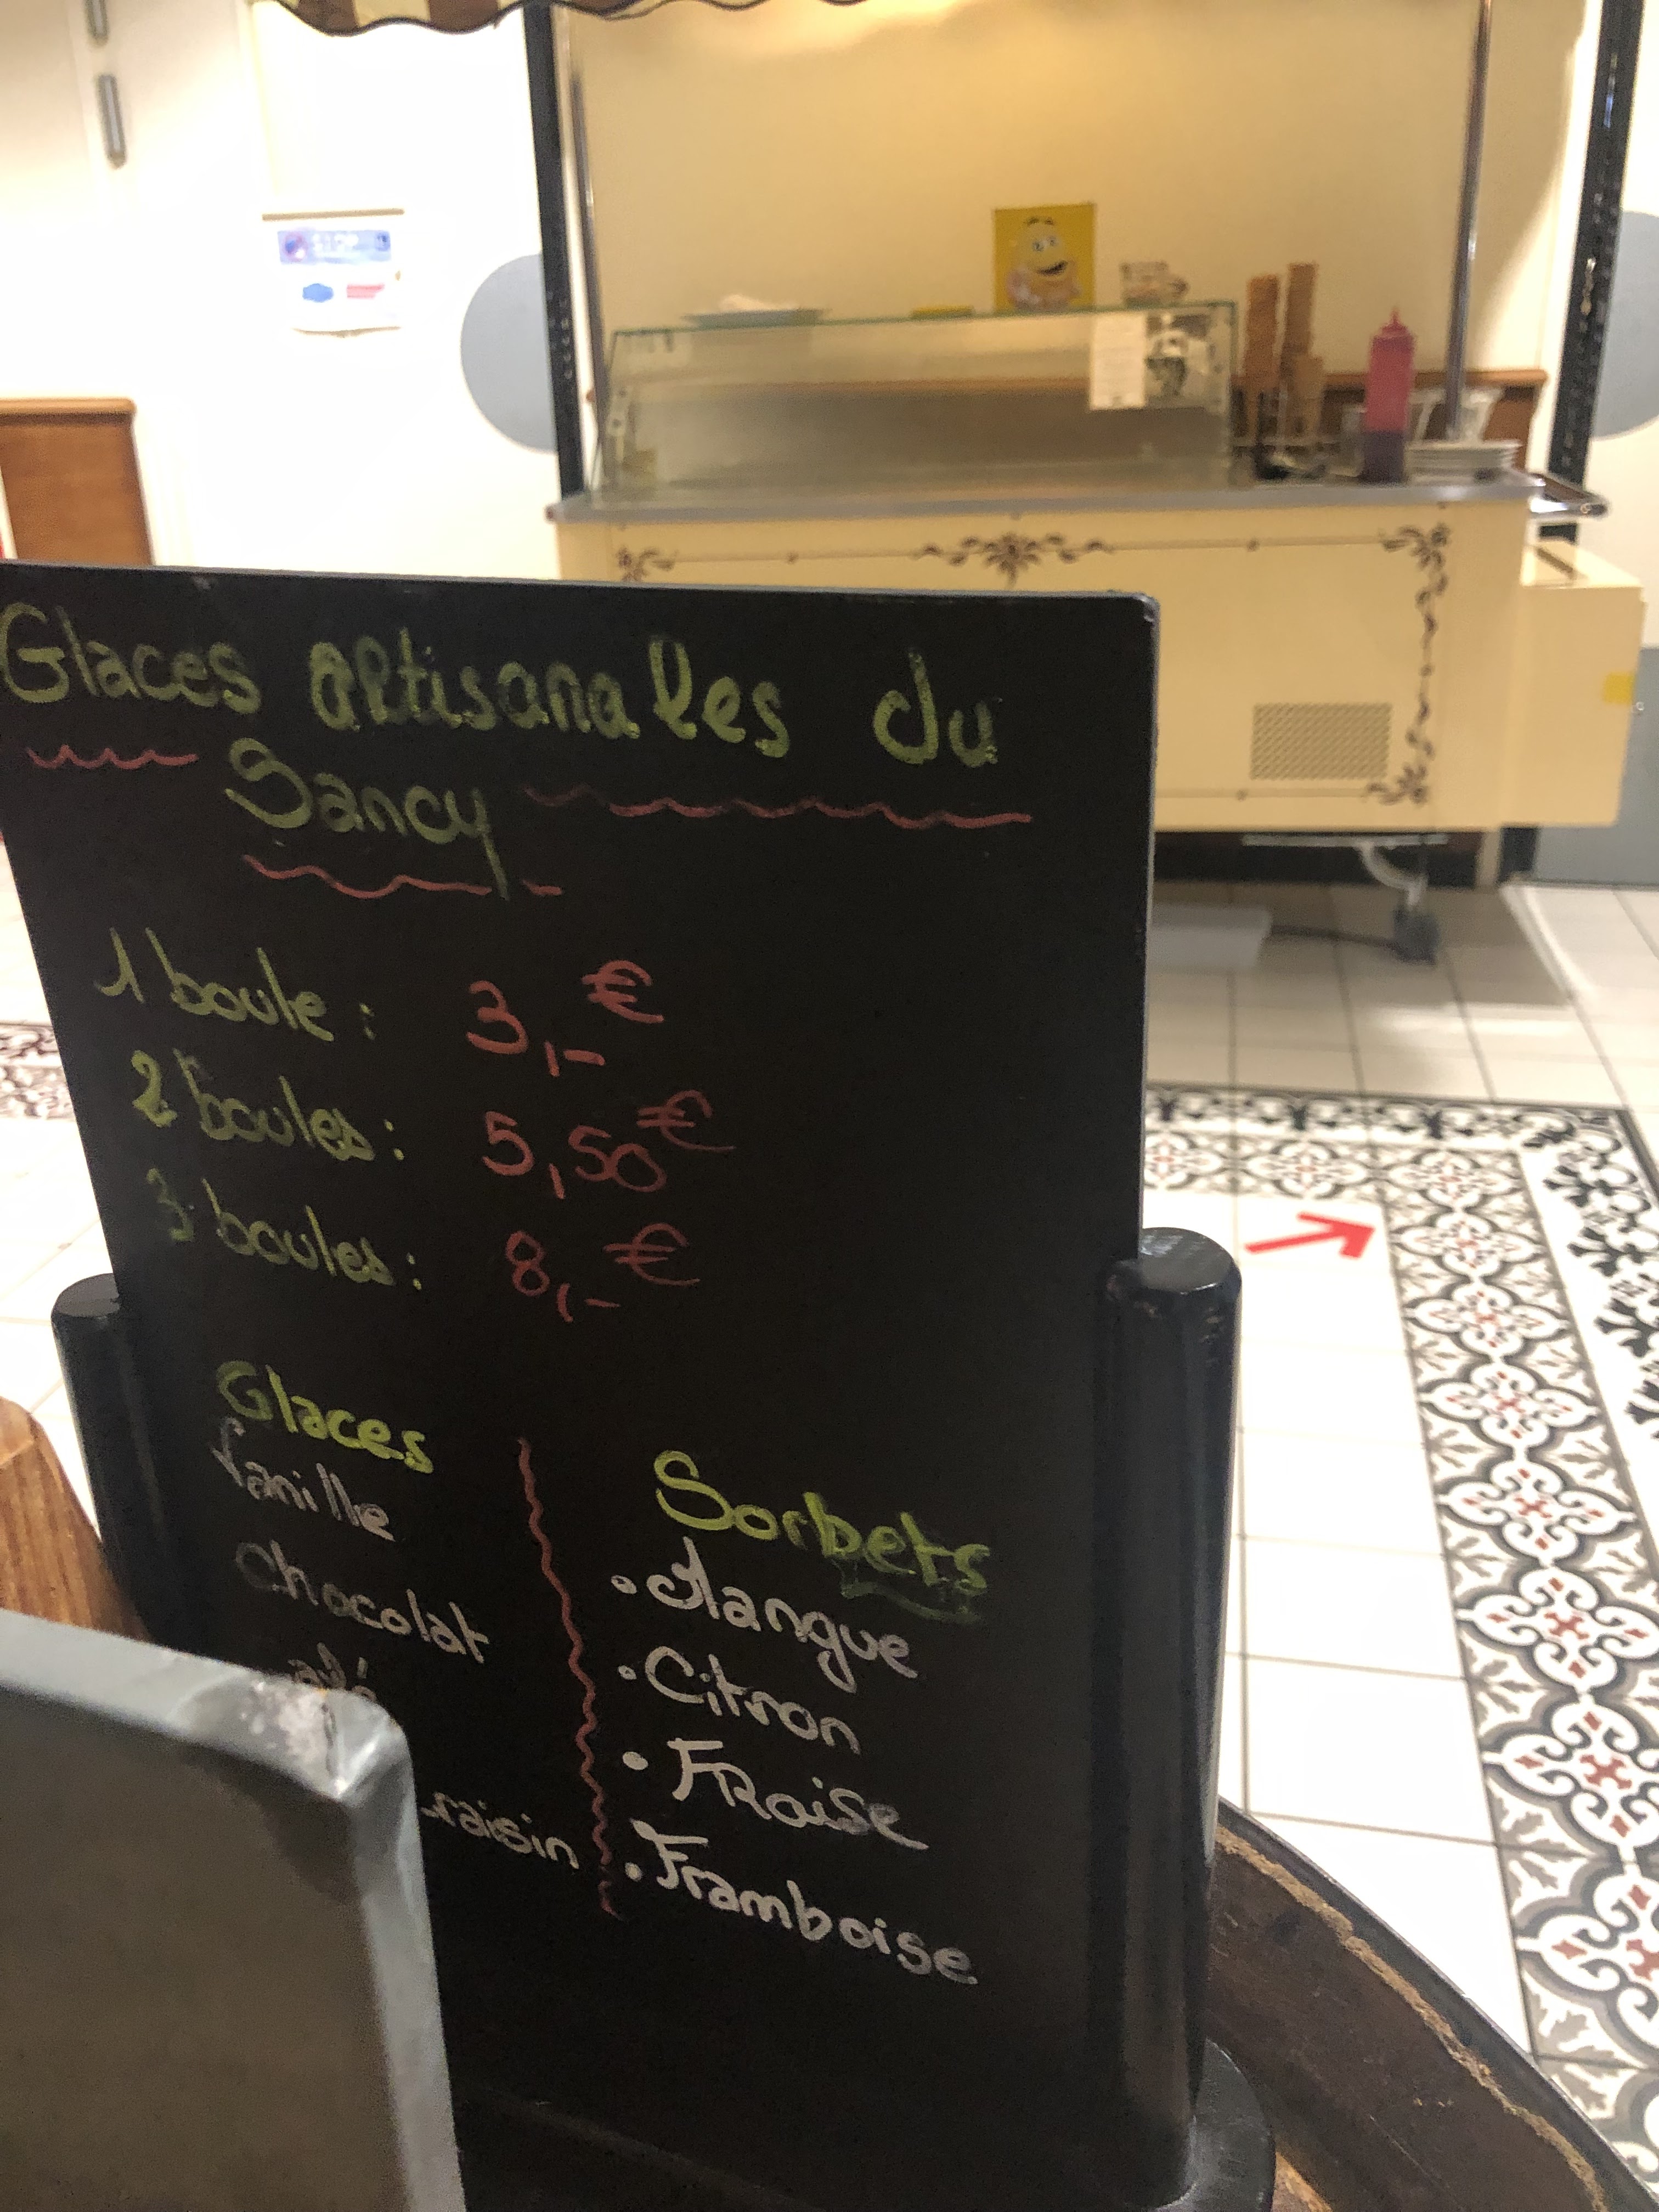 Glaces artisanales du
Sancy
1 boule : 3,- €
2 boules : 5,50 €
3 boules : 8,- €
Glaces
Vanille
Chocolat
raisin
Sorbets
• Mangue
• Citron
• FRaise
• Framboise